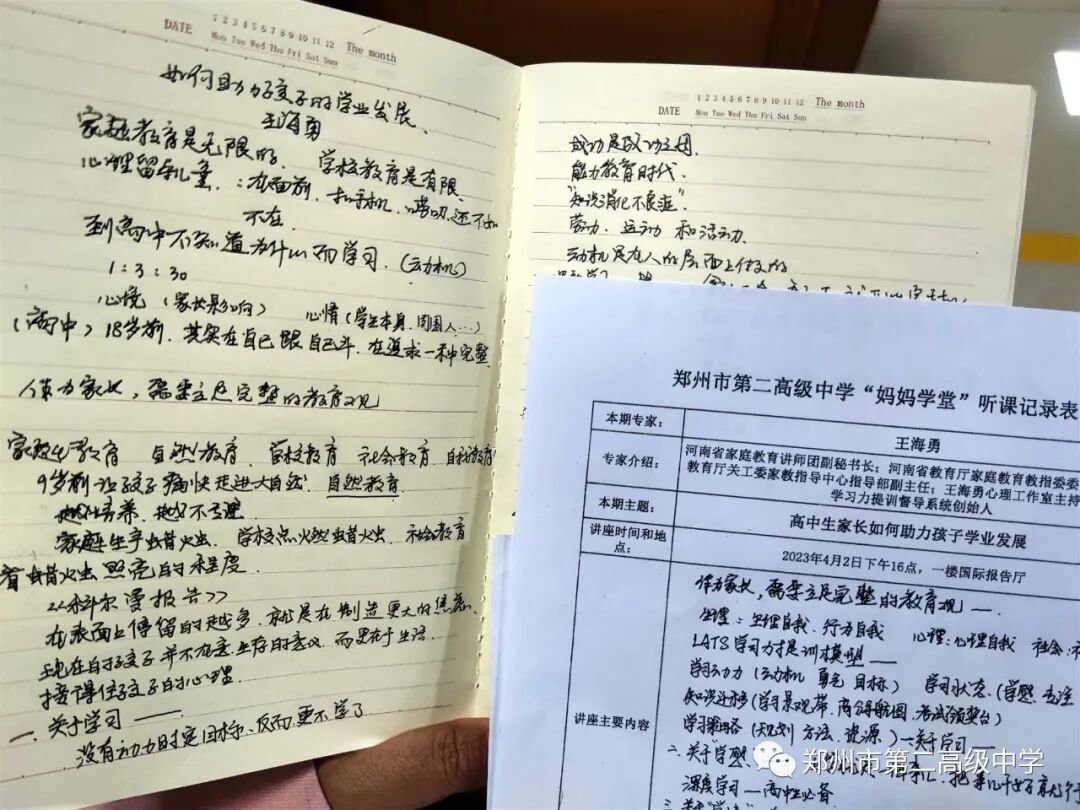 DATE 1 2 3 4 5 6 7 8 9 10 11 12 The month
Mon Tue Wed Thu Fri Sat Sun
如何助力孩子的学业发展、
王海勇
家庭教育是无限的、学校教育是有限、
心理留守儿童:在面前、扣手机、唠叨,还不如
不在
到高中不知道为什么而学习.(动机)
1:3:30
心境(家长影响) 心情(学生本身、周围人…)
(高中)18岁前,其实在自己跟自己斗,在追求一种完整
作为家长,需要立足完整的教育观
家庭教育 自然教育、学校教育 社会教育 自我教育
9岁前让孩子痛快走进大自然、自然教育
家庭生产蜡火虫、学校点燃蜡火虫、社会教育
看蜡火虫照亮的程度
《科尔曼报告》
在表面上停留的越多、就是在制造更大的焦虑、
现在的孩子并不在意生存的意义,而更在于生活
接得住孩子的心理.
一、关于学习——
没有动力时定目标、反而更不学了
DATE 1 2 3 4 5 6 7 8 9 10 11 12 The month
Mon Tue Wed Thu Fri Sat Sun
成功是成功之母.
能力教育时代.
"知识消化不良症".
劳动、运动 和活动.
动机是在人的层面上做的
郑州市第二高级中学“妈妈学堂”听课记录表
本期专家: 王海勇
专家介绍: 河南省家庭教育讲师团副秘书长;河南省教育厅家庭教育教指委委
教育厅关工委家教指导中心指导部副主任;王海勇心理工作室主持
学习力提训督导系统创始人
本期主题: 高中生家长如何助力孩子学业发展
讲座时间和地点: 2023年4月2日下午16点,一楼国际报告厅
讲座主要内容
作为家长,需要立足完整的教育观 —.
生理:生理自我、行为自我 心理:心理自我 社会:
LATS学习力提训模型——
学习动力(动机 勇气 目标) 学习状态(学愿 专注
知识迁移(学习景观带、两份导航图、考试领奖台)
学习策略(规划 方法、资源、)一关于学习——
二、关于"学愿"
深度学习—高中生必备
郑州市第二高级中学